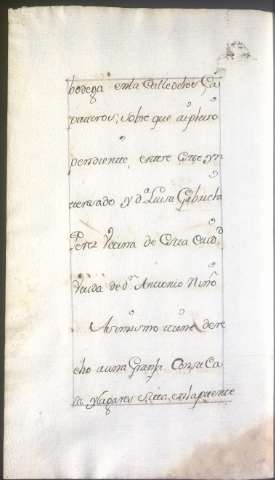 bodega en la Calle delos Ça
pateros, sobre que ai pleito
pendiente, entre este yn
teresado y Dª Luisa Gabriela
Perez Vecina de esta ciudᵈ
Viuda de Dⁿ Antonio Niño
Asimismo tiene dere
cho a una Granja con su Ca
sa y lagares sitta, en la puente